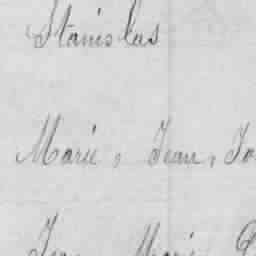 Stanislas
Marie, Jean, Jo
Jean Marie